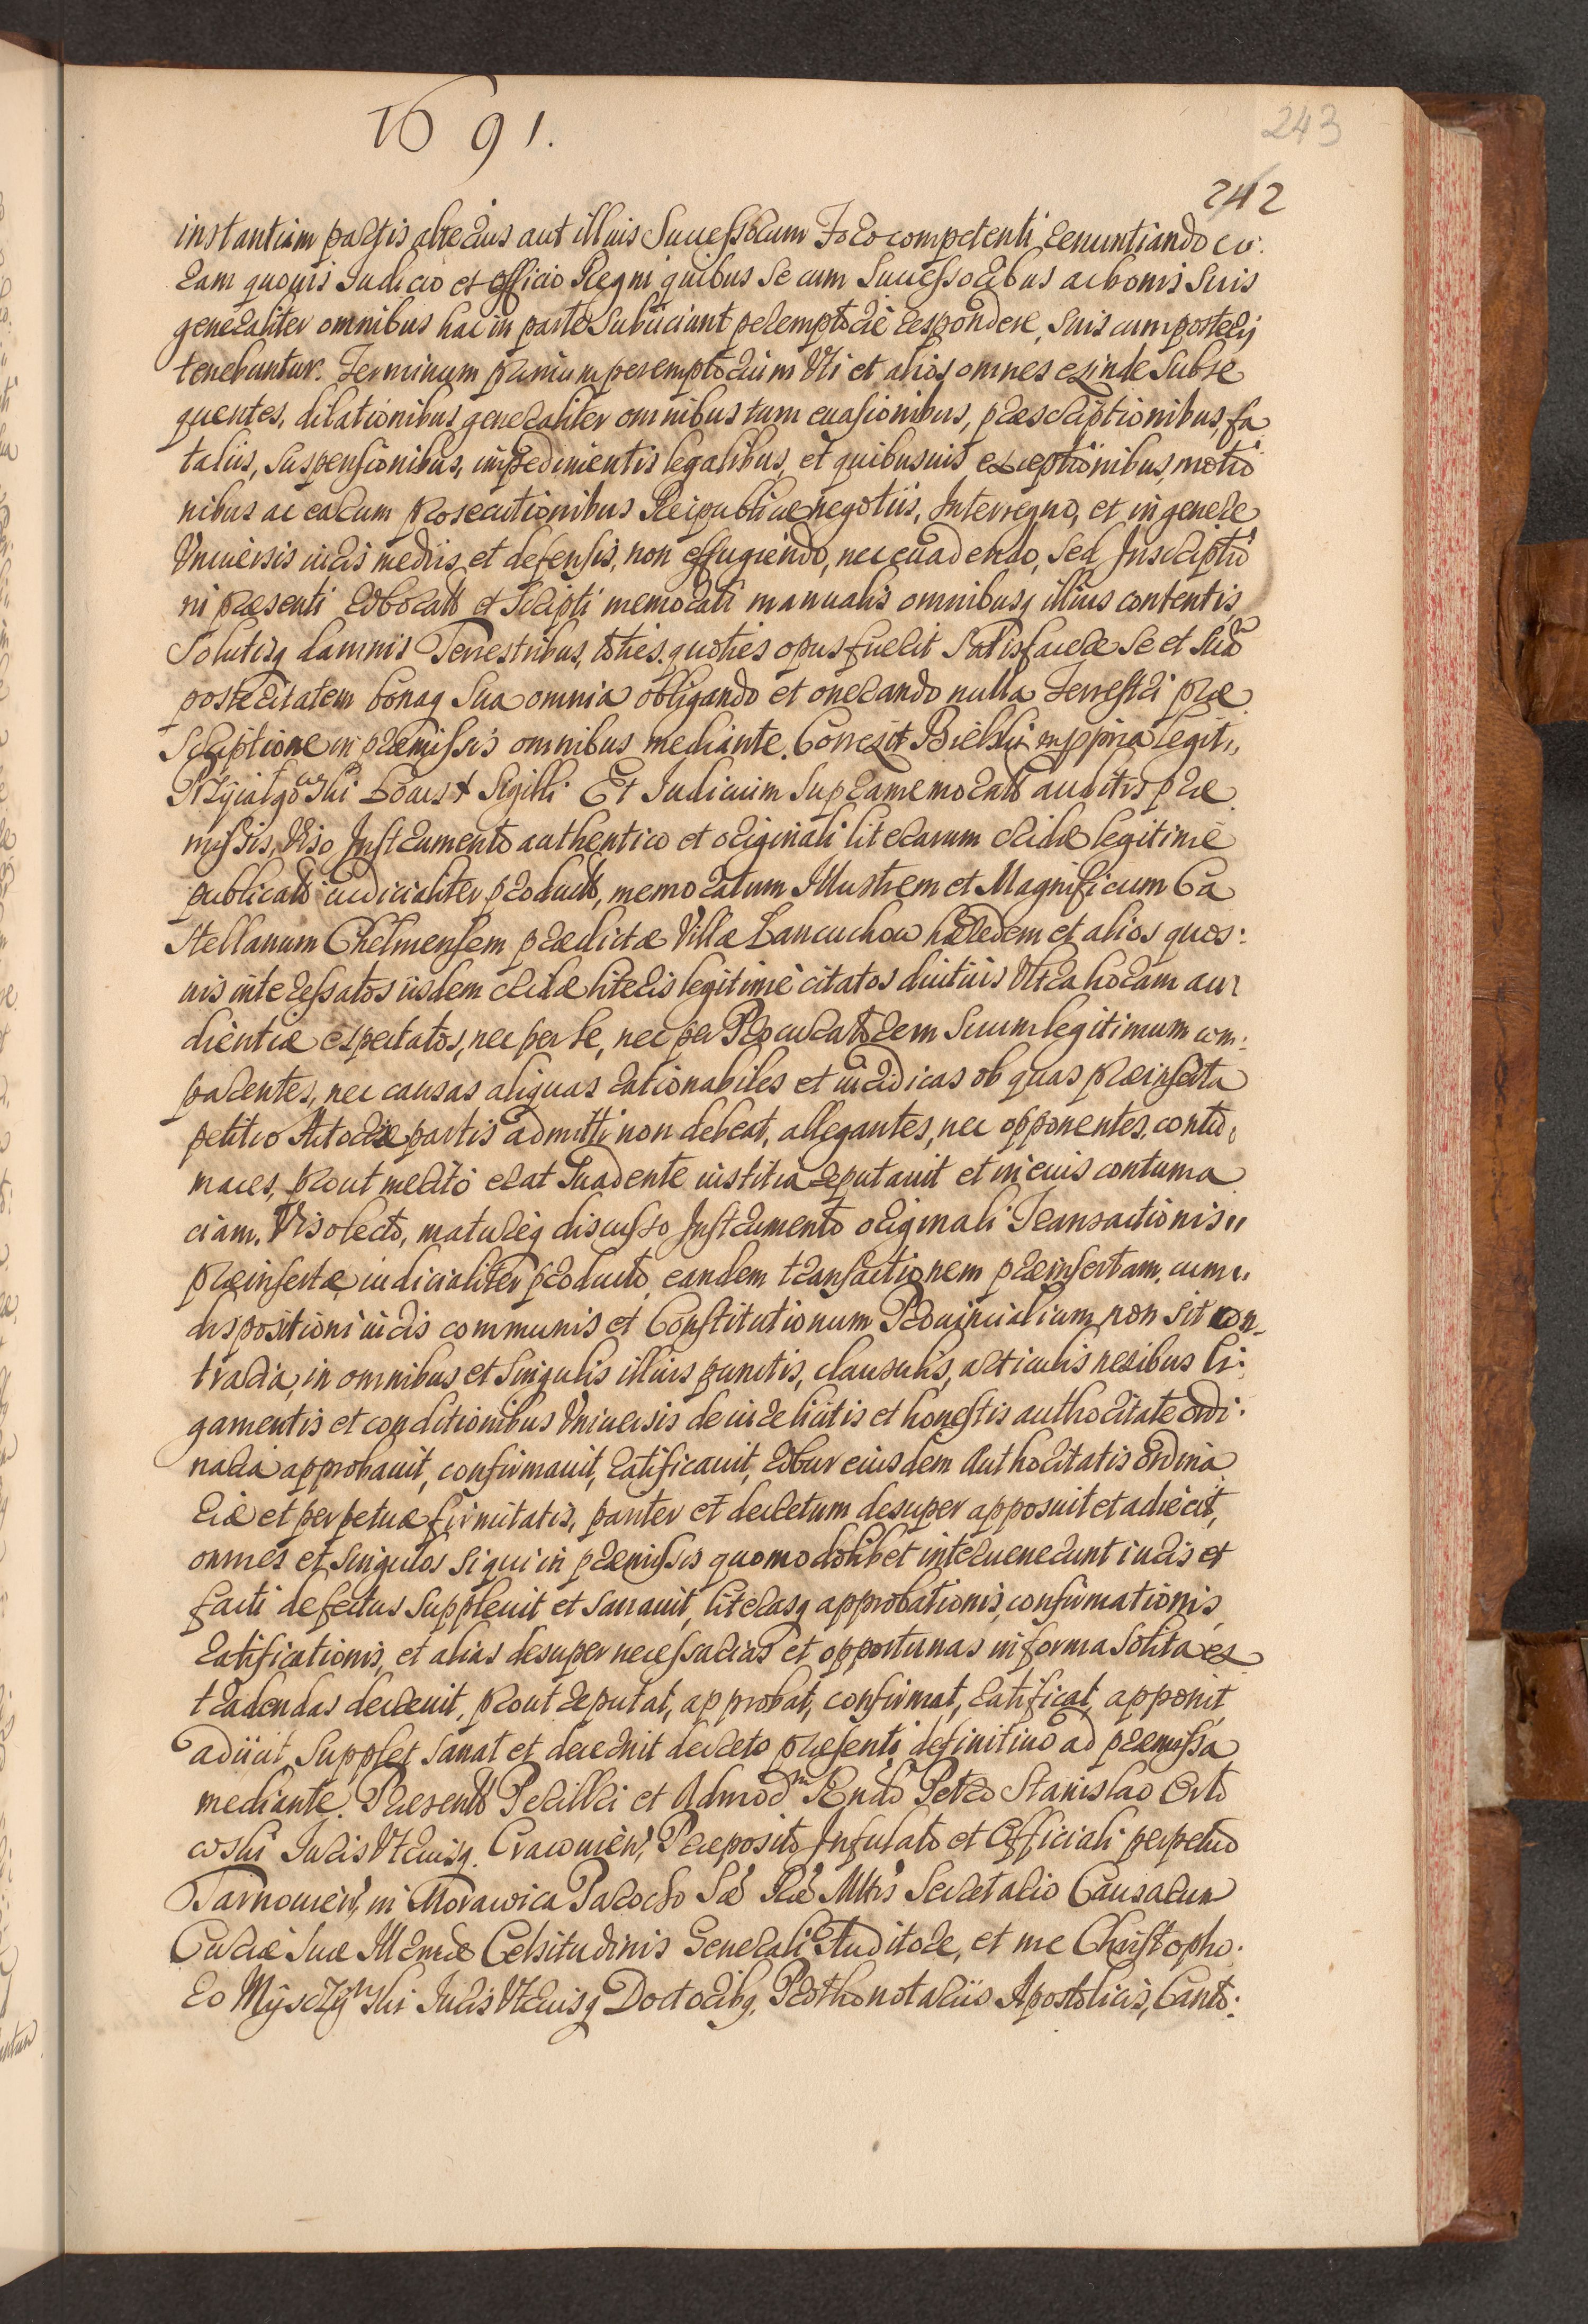 1691.
243
242
instantiam partis alterius aut illius Successorum Foro competenti renuntiando co:
ram quouis Iudicio et officio Regni quibus se cum Successoribus ac bonis suis
generaliter omnibus hac in parte Subiiciunt peremptorie respondere, suis cum posteris
tenebuntur. Terminum primum peremptorium Uti et alios omnes exinde Subse
quentes, dilationibus generaliter omnibus tum euasionibus, præscriptionibus, fa
taliis, suspensionibus, impedimentis legalibus, et quibusuis exceptionibus, motio
nibus ac earum prosecutionibus Reipublicæ negotiis, Interregno, et in genere
Vniuersis iuris mediis, et defensis, non effugiendo, nec euadendo, sed Inscriptio
ni præsenti roborato et Scripti memorati manualis omnibusq illius contentis
Solutisq damnis Terrestribus, toties quoties opus fuerit Satisfacere se et suã
posteritatem bonaq sua omnia obligando et onerando nulla Terrestri præ
scriptione in præmissis omnibus mediante. Correxit Bielski mppria legit,,
Przyialgowski Locus + Sigilli Et Iudicium supramemorato auditis præ
missis, Viso Instrumento authentico et originali literarum cridæ legitime
publicato iudicialiter producto, memoratum Illustrem et Magnificum Ca
stellanum Chelmensem prædictæ Villæ Lancuchow hæredem et alios quos:
uis interessatos iisdem cridæ literis legitime citatos diutius Vltra horam au
dientiæ expectatos, nec per se, nec per Procuratorem suum legitimum com:
parentes, nec causas aliquas rationabiles et iuridicas ob quas præinserta
petitio Actoreæ partis admitti non debeat, allegantes, nec opponentes, contu,
maces, prout merito erat suadente iustitia reputauit et in eius contuma
ciam. Viso lecto, matureq discusso Instrumento originali Transactionis,,
præinsertæ iudicialiter producto, eandem transactionem præinsertam, cum,,
dispositioni iuris communis et Constitutionum Prouincialium non sit con-
traria, in omnibus et singulis illius punctis, clausulis, articulis nexibus li:
gamentis et conditionibus Vniuersis de iure licitis et honestis authoritate ordi:
naria approbauit, confirmauit, ratificauit, robur eiusdem Authoritatis ordina
riæ et perpetuæ firmitatis, pariter et decretum desuper apposuit et adiecit,
omnes et singulos si qui in præmissis quomodolibet interuenerunt iuris et
facti defectus suppleuit et sanauit, literasq approbationis, confirmationis,
ratificationis, et alias desuper necessarias et opportunas in forma solita ex
tradendas decreuit, prout reputat, approbat, confirmat, ratificat, apponit,
adiicit, supplet, sanat et decernit decreto præsenti definitiuo ad præmissa
mediante. Præsente Perillri et Admod Rndo Petro Stanislao Orlo
wski Iuris Vtriusq. Cracouien, Præposito Infulato et Officiali perpetuo
Tarnouien, in Morawica Parocho Sæ Ræ Mttis Secretario Causarum
Curiæ suæ Illmæ Celsitudinis Generali Auditore, et me Christopho:
ro Mysczynski Iuris Vtriusq Doctoribq, Prothonotariis Apostolicis, Canto: